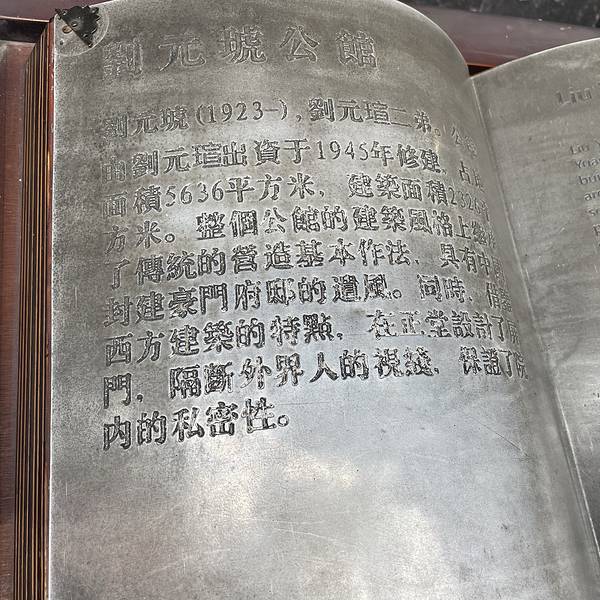 劉元琥公館
劉元琥(1923-),劉元瑄二弟。公館
由劉元瑄出資于1945年修建,占地
面積5636平方米,建築面積2326
方米。整個公館的建築風格上繼
了傳統的營造基本作法,具有中國
封建豪門府邸的遺風。同時,借鑒
西方建築的特點,在正堂設計了屏
門,隔斷外界人的視綫,保證了院
内的私密性。
Liu
Liu Y
Yuan
bu